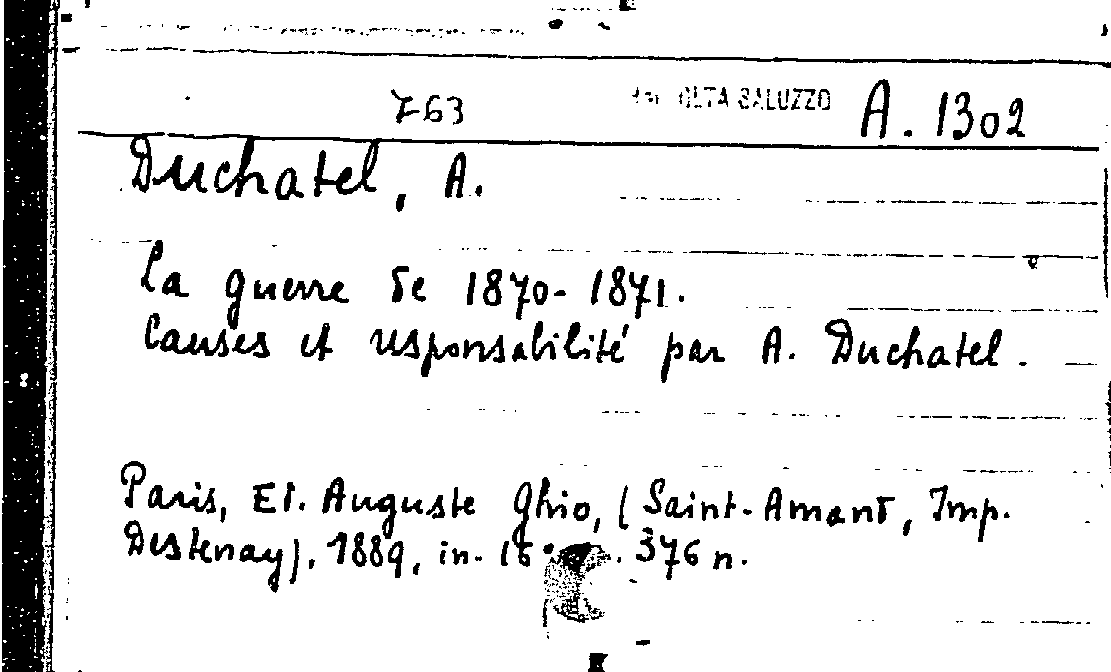 763 OLTA SALUZZO A. 1302
Duchatel, A.
La guerre de 1870-1871.
Causes et responsabilité par A. Duchatel.
Paris, Et. Auguste Ghio, (Saint-Amand, Imp.
Destenay), 1889, in-16° 376 n.